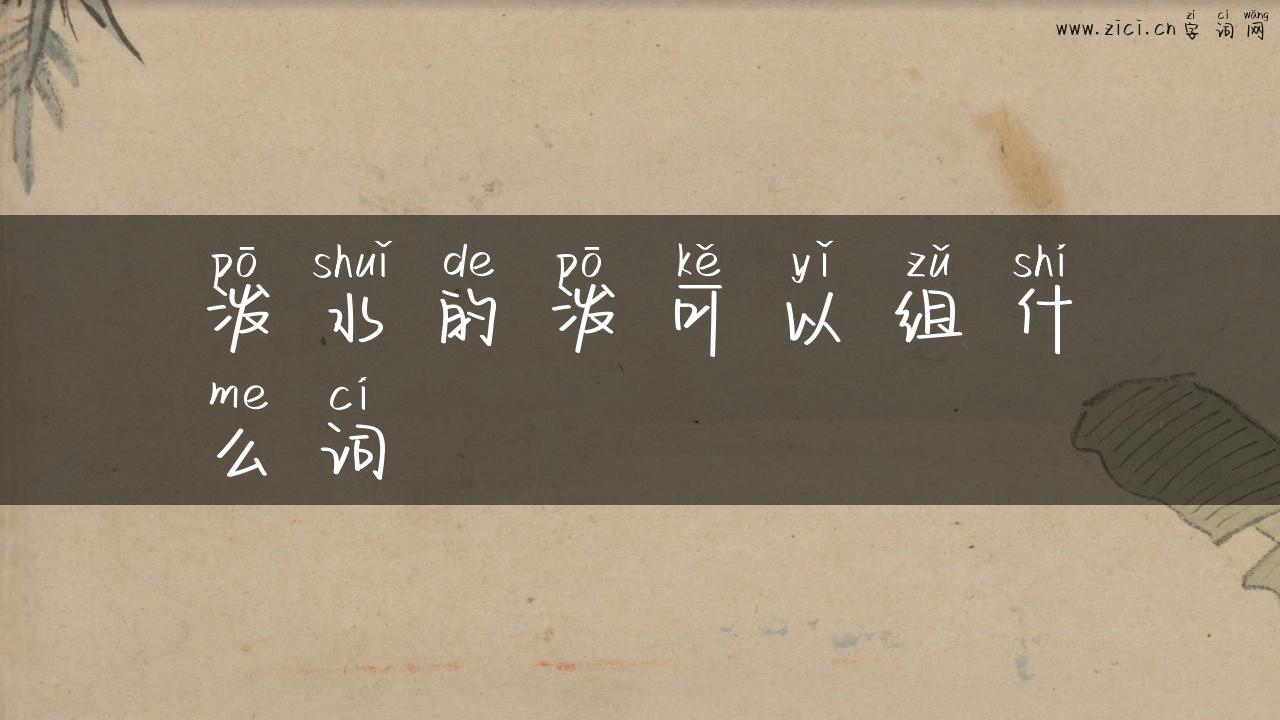 zì cí wǎng
www.zici.cn 字 词 网
pō shuǐ de pō kě yǐ zǔ shí
泼 水 的 泼 可 以 组 什
me cí
么 词